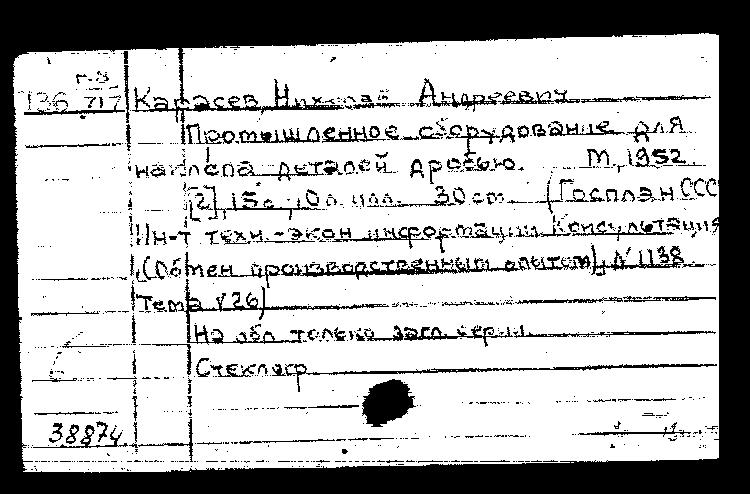 Г.8
136 717 Карасев, Николай Андреевич
Промышленное оборудование для
наклепа деталей дробью. М, 1952
[2], 15 с, 0 л. илл. 30 cm. (Госплан СССР
Ин-т техн.-экон информации Консультация
"(Обмен производственным опытом), № 1138
Тема №26)
На обл только загл. серии.
Стеклогр
38874